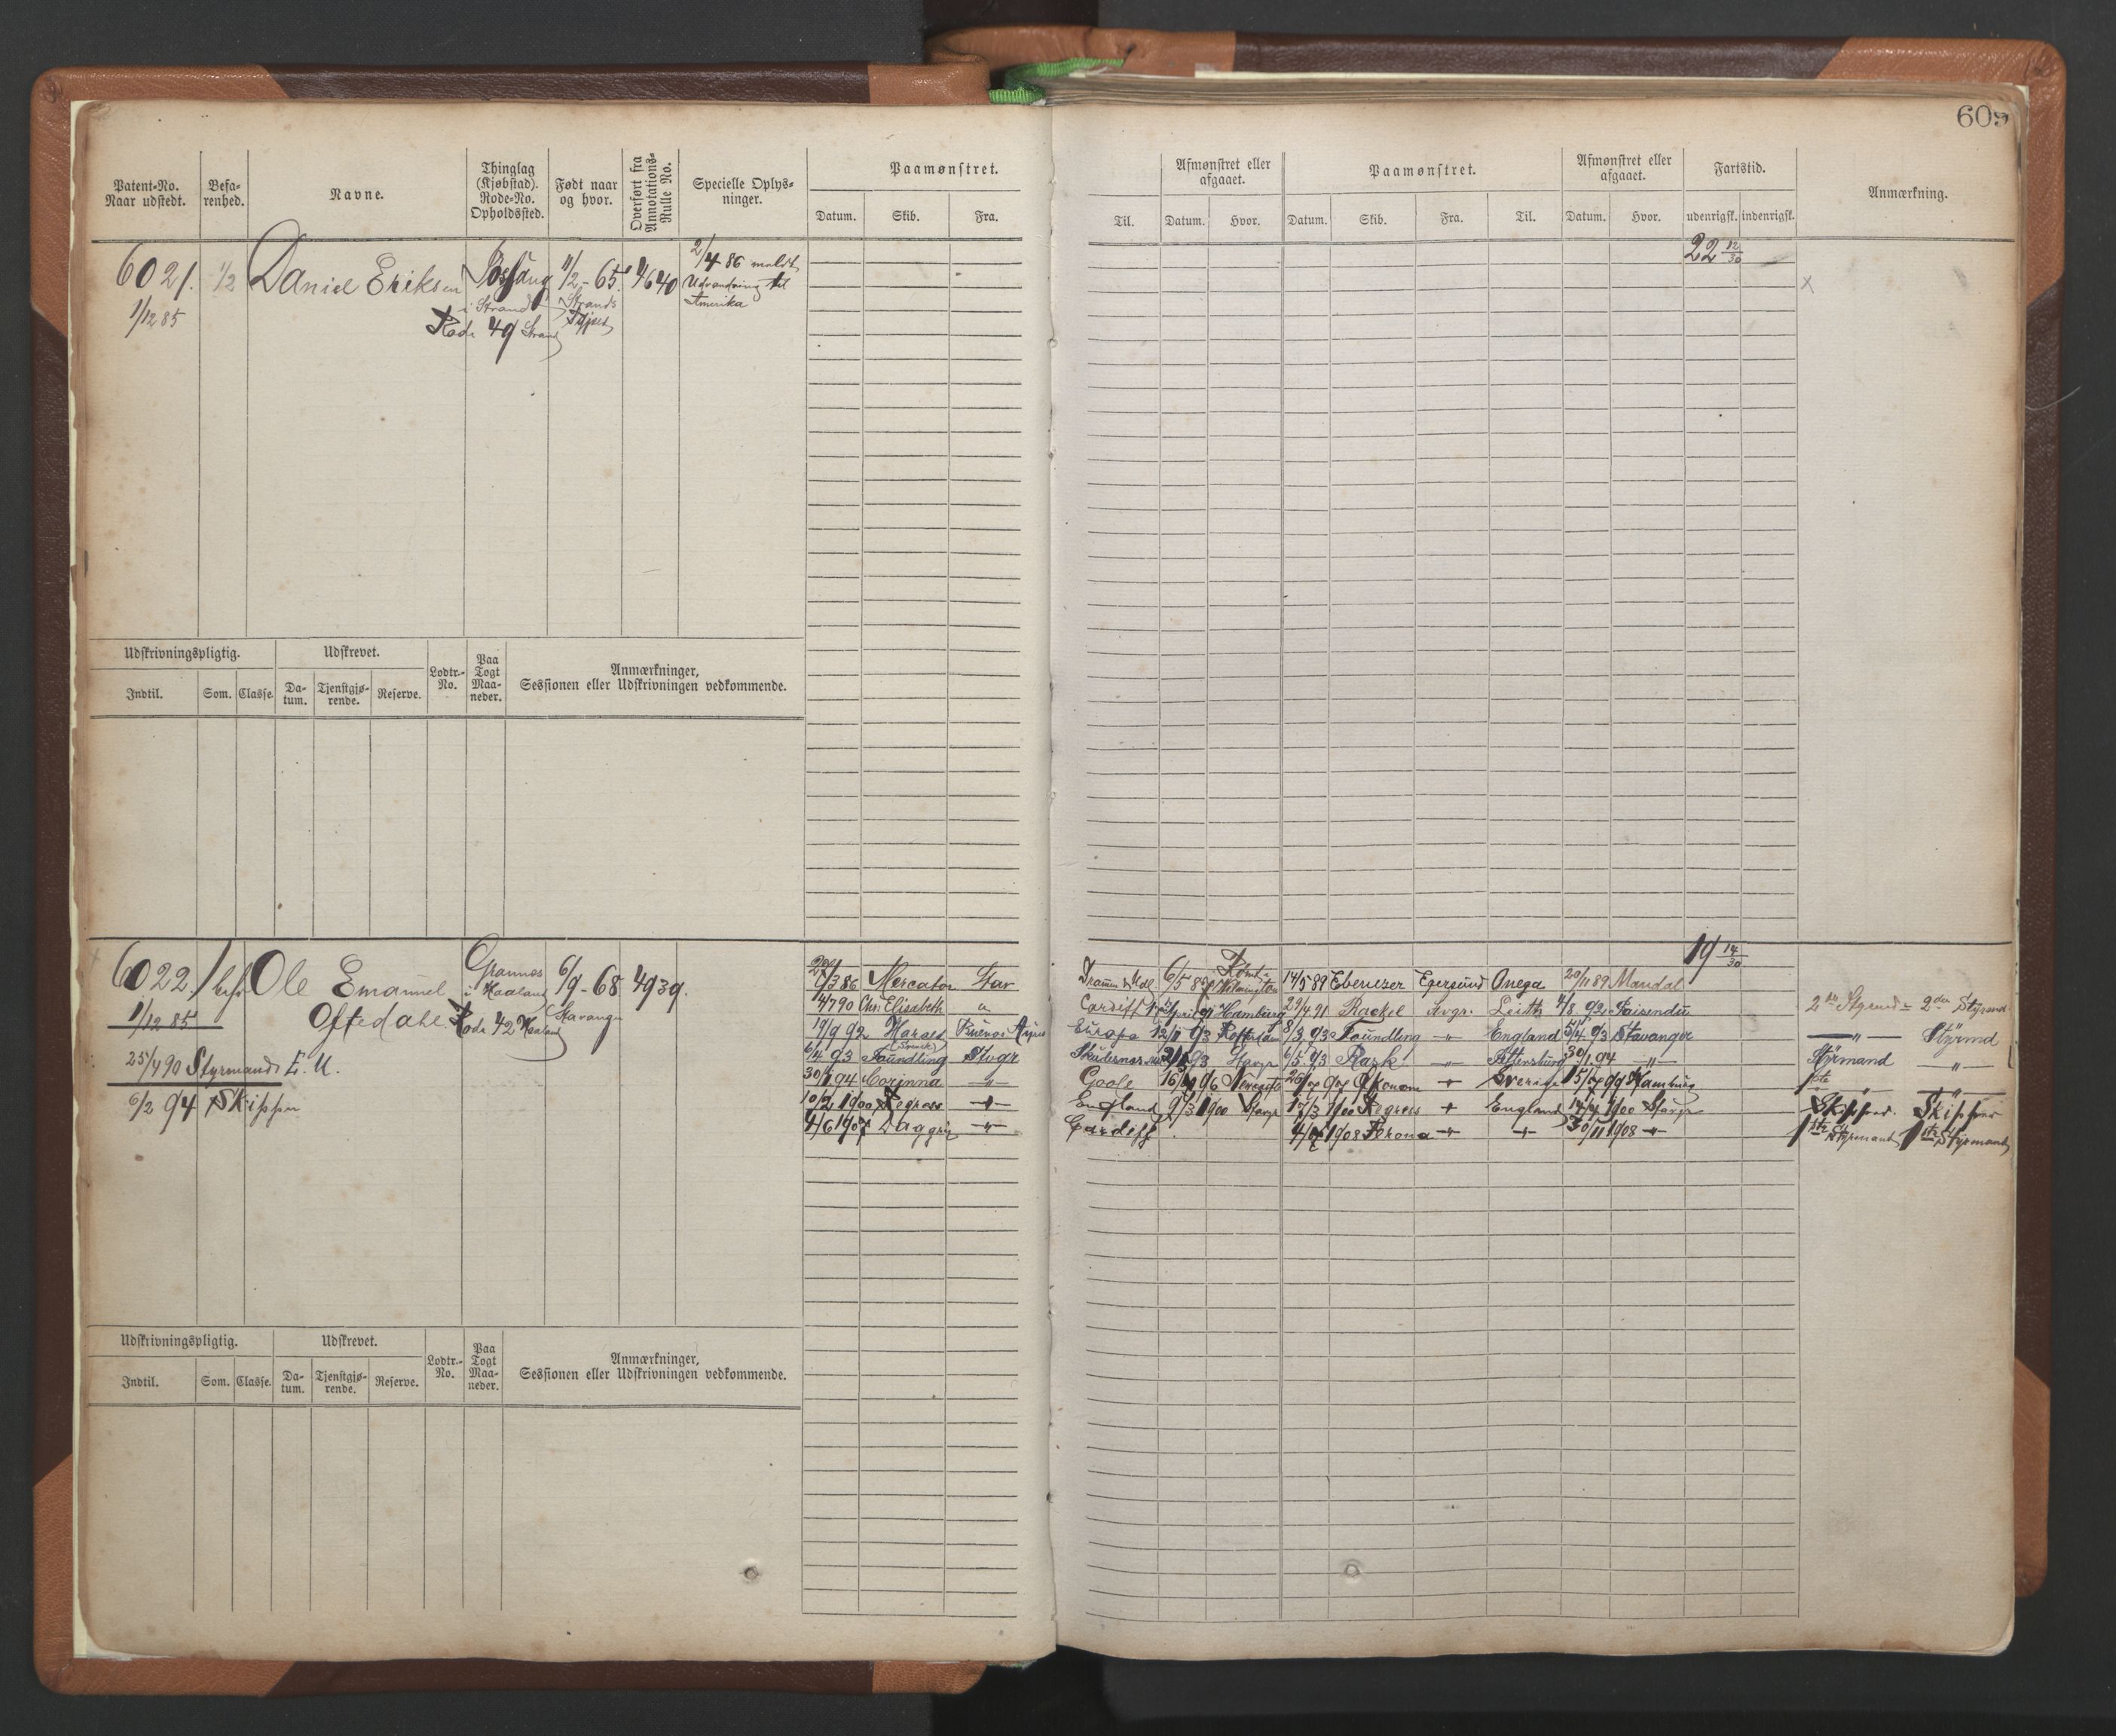 609
Patent-No. Naar udstedt.
Befa-renhed.
Navne.
Thinglag (Kjøbstad). Rode-No. Opholdssted.
Født naar og hvor.
Overført fra Annotations-Rulle No.
Specielle Oplys-ninger.
Paamønstret.
Datum. Skib. Fra. Til.
Afmønstret eller afgaaet.
Datum. Hvor.
Paamønstret.
Datum. Skib. Fra. Til.
Afmønstret eller afgaaet.
Datum. Hvor.
Fartstid.
udenrigsk. indenrigsk.
Anmærkning.
6021. 1/2 Daniel Eriksen 11/2-65 4640 2/4 86 meldt
i Strand Strands Udvandring til
1/12 85 Rode 49 Strand Amerika
22 12/30
Udskrivningspligtig. Udskrevet. Lodtr.-No. Paa Togt Maa-neder. Anmærkninger, Sessionen eller Udskrivningen vedkommende.
Indtil. Som. Classe. Da-tum. Tjenstgjø-rende. Reserve.
19 14/30
6022 Ole Emanuel Grannes 6/9-68 4939.
i Haaland
1/12 85 Oftedahl Rode 42 Haaland Stavanger
25/4 90 Styrmands E. U.
6/2 94 Skipper
3 86 Mercator Stav 6/5 89 Wilmington 14/5 89 Ebenezer Egersund Onega 20/11 89 Mandal
14/7 90 Chr: Elisabeth " Cardiff April 91 Hamburg 29/4 91 Rackel Svgr. Leith 4/8 92 Paisendu 2den Styrmd = 2den Styrmd
19/9 92 Buenos Ayres Europa 12/1 93 Rotterdam 8/3 93 Foundling -"- England 5/4 93 Stavanger -"- Styrmd
6/4 93 Foundling Stvgr 93 Stavgr 6/5 93 Rask -"- 30/1 94 -"- Styrmand -"-
30/1 94 Corinna -"- Goole 96 Sverige 99 Hamburg 1ste "
10/2 1900 Regress -"- England 9/3 1900 Stavgr 17/3 1900 Regress England 1900 Stavgr Skipper. Skipper
4/6 1907 -"- Cardiff 1908 Verona -"- -"- 30/11 1908 -"- 1ste Styrmand 1ste Styrmand
Udskrivningspligtig. Udskrevet. Lodtr.-No. Paa Togt Maa-neder. Anmærkninger, Sessionen eller Udskrivningen vedkommende.
Indtil. Som. Classe. Da-tum. Tjenstgjø-rende. Reserve.